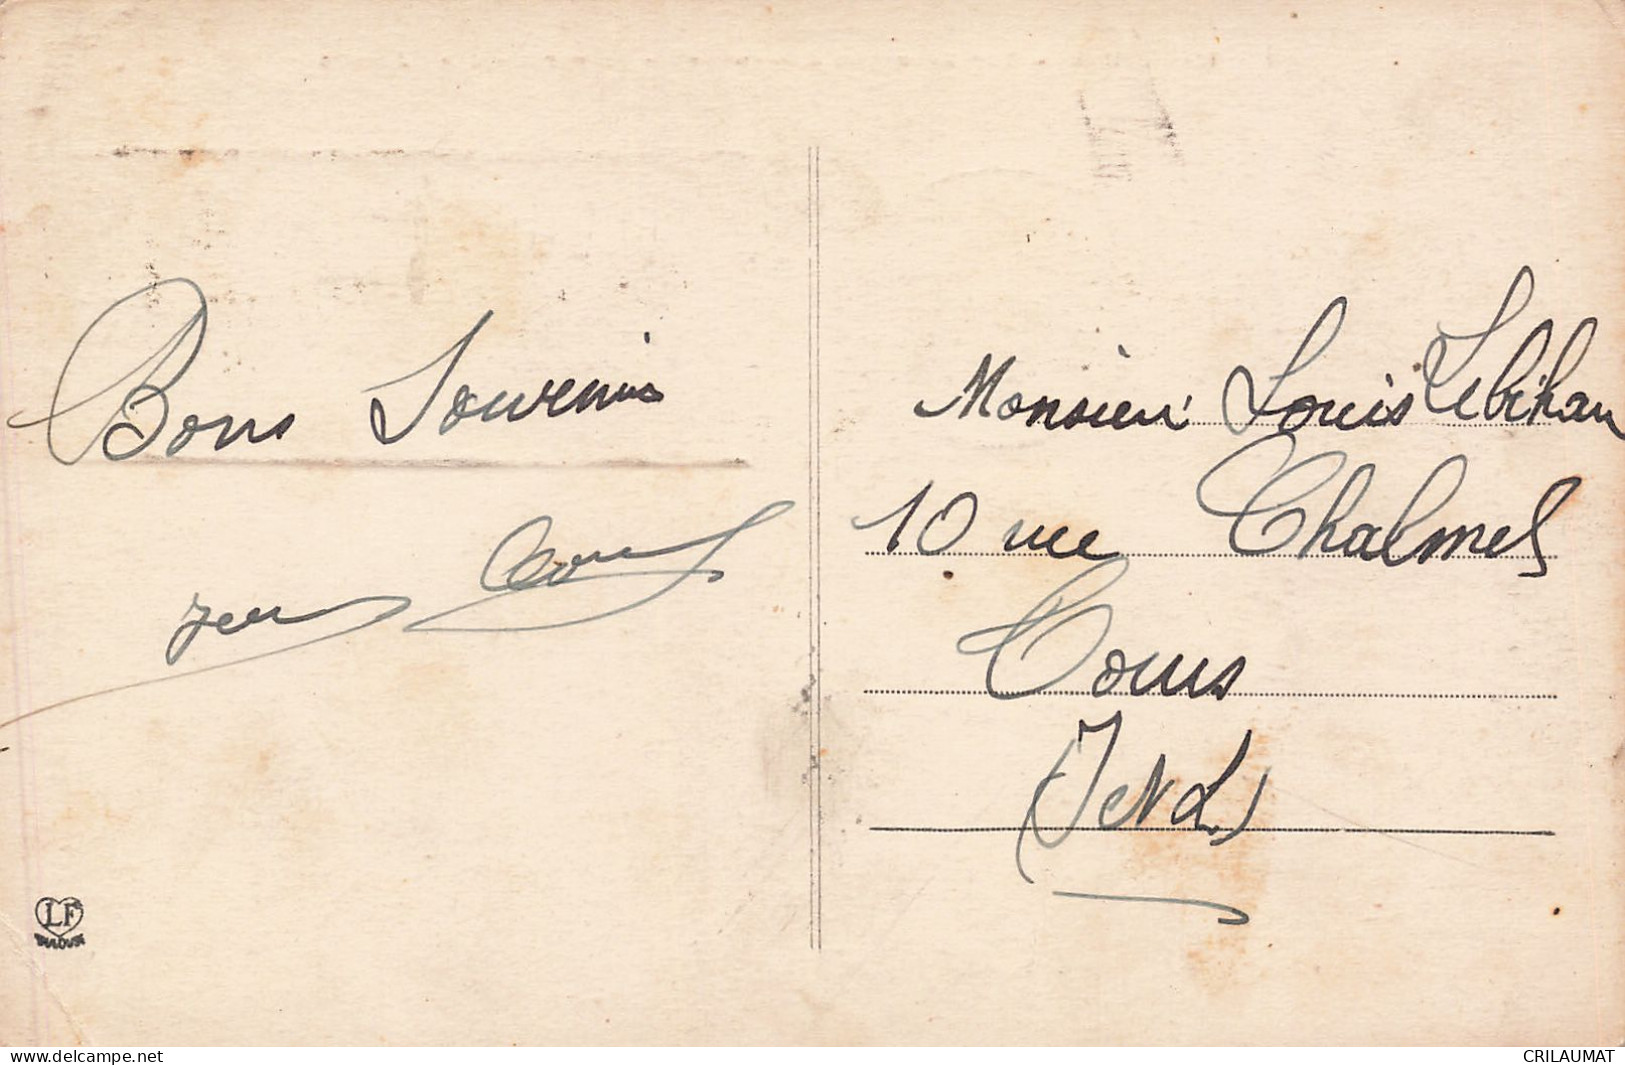 Bons Souvenirs
Monsieur Louis Lebihan
10 rue Chalmel
Tours
(I et L)
LF
www.delcampe.net
CRILAUMAT